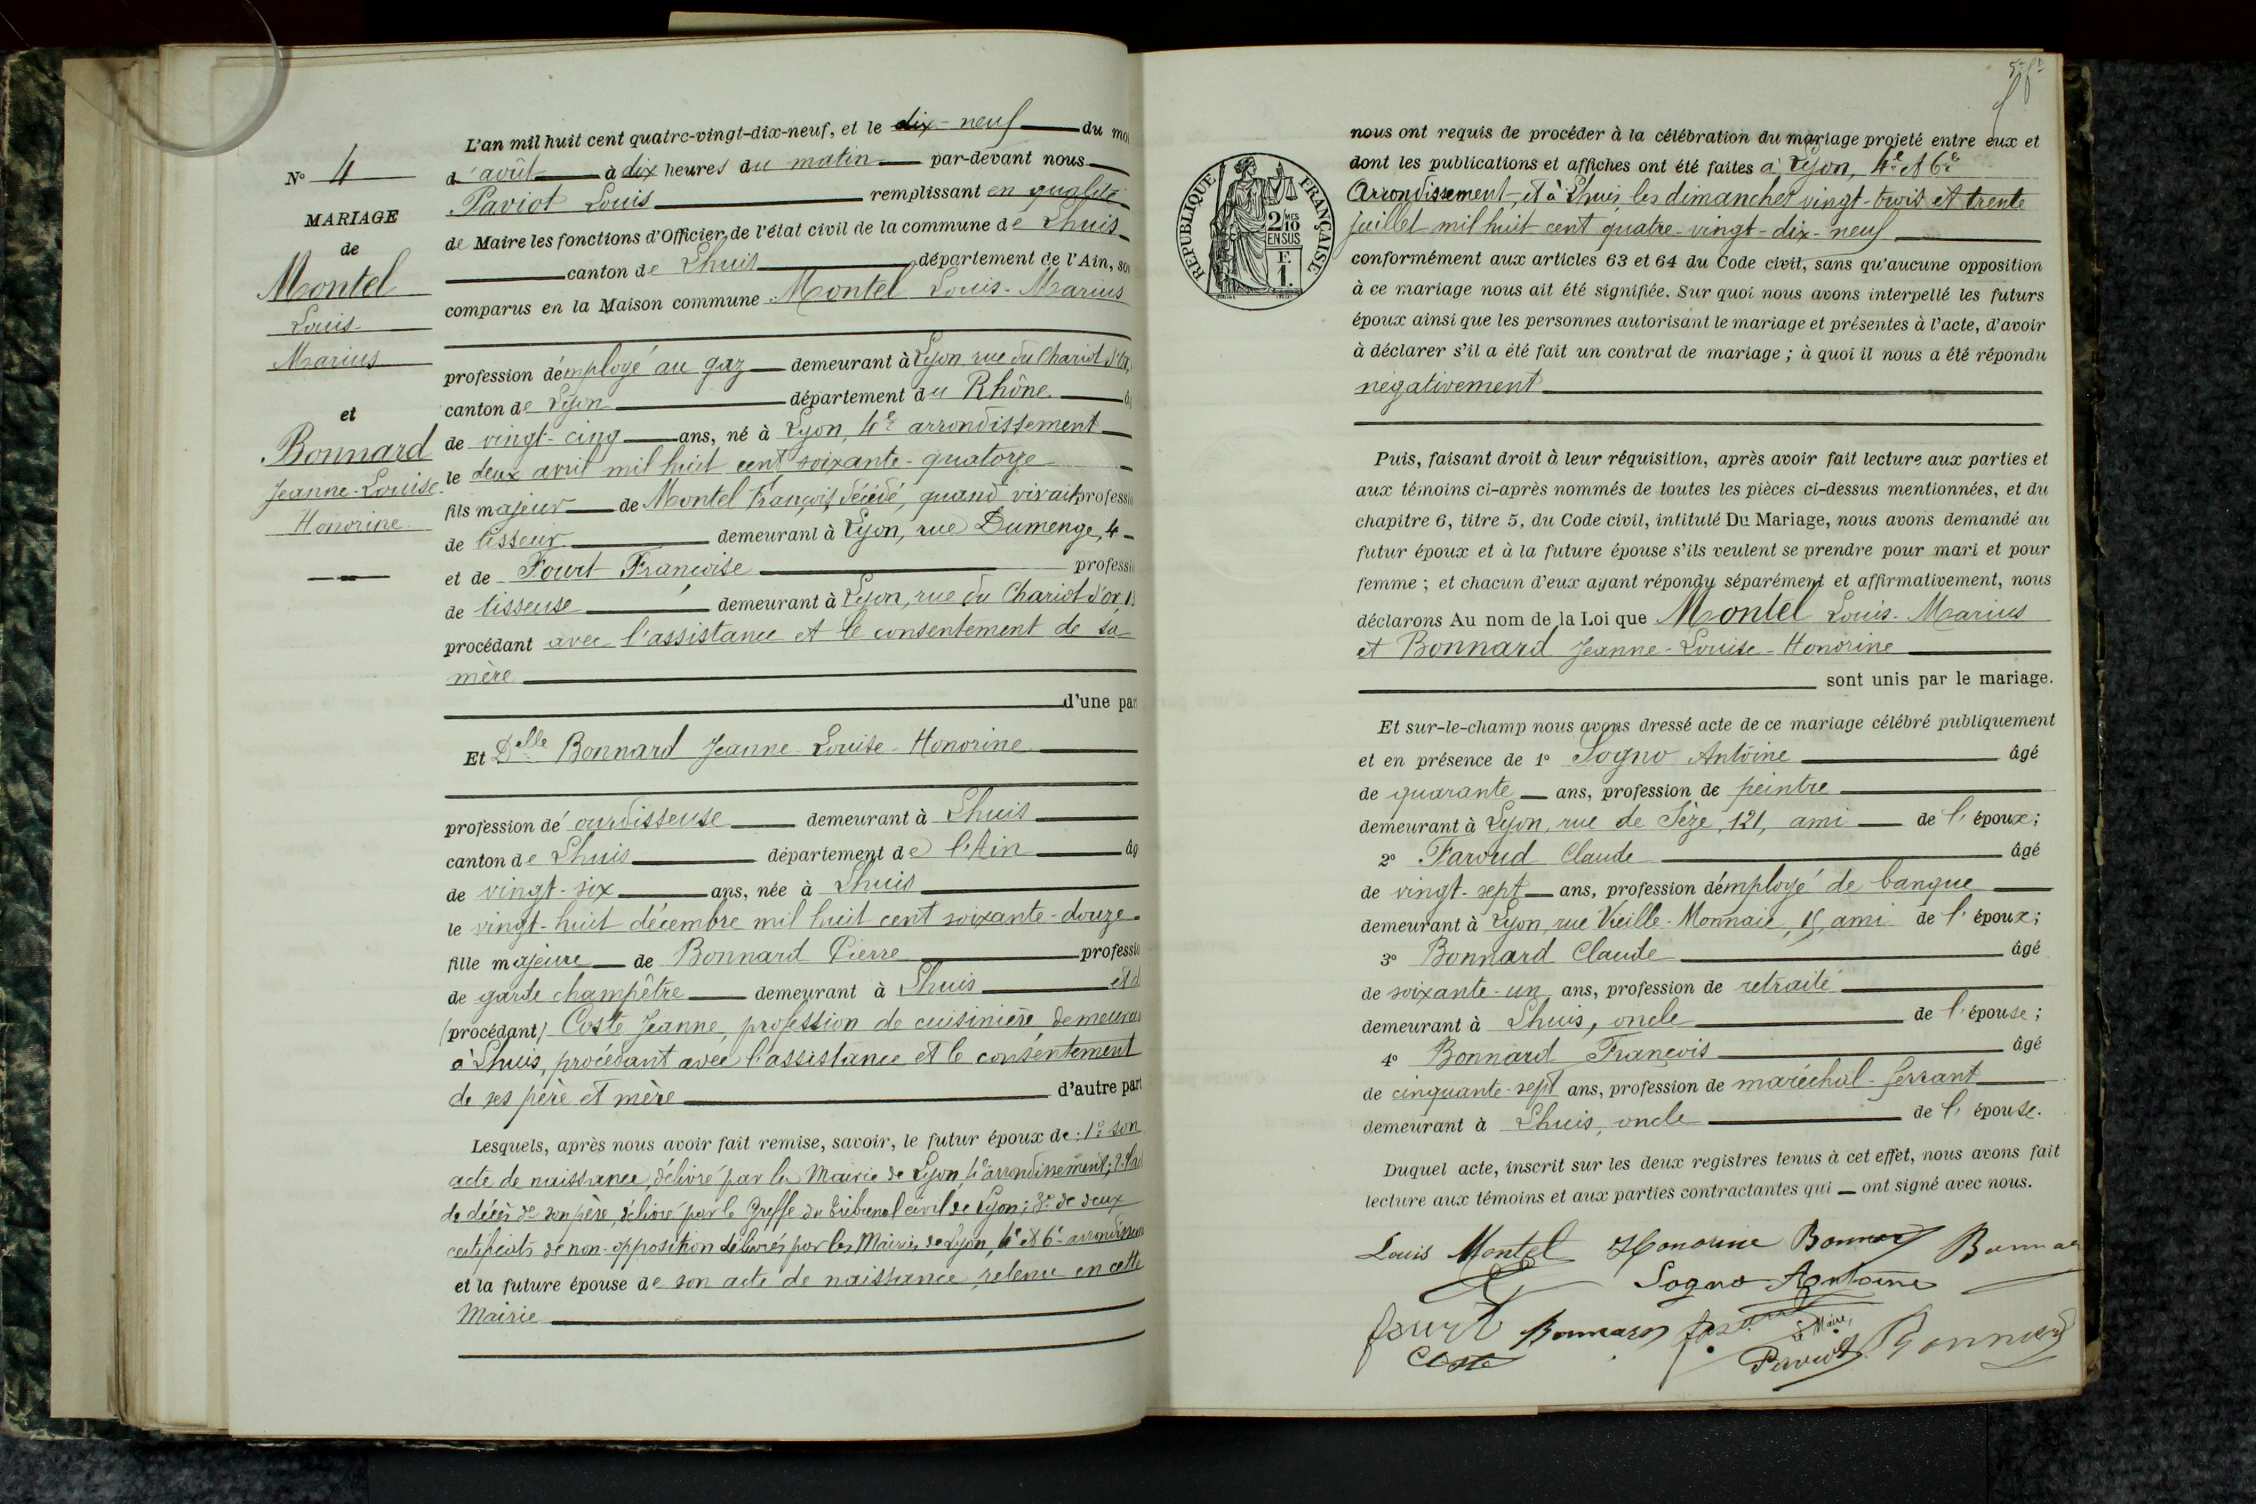 N° 4
MARIAGE
de
Montel
Louis
Marius
et
Bonnard
Jeanne-Louise
Honorine
L'an mil huit cent quatre-vingt-dix-neuf, et le dix-neuf du moi
d'août à dix heures du matin par-devant nous
Paviot Louis remplissant en qualité
de Maire les fonctions d'Officier de l'état civil de la commune de Lhuis
canton de Lhuis département de l'Ain, son
comparus en la Maison commune Montel Louis-Marius
profession d'employé au gaz demeurant à Lyon rue du Chariot d'Or,
canton de Lyon département du Rhône âg
de vingt-cinq ans, né à Lyon, 4e arrondissement
le deux avril mil huit cent soixante-quatorze
fils majeur de Montel François, décédé, quand vivait professio
de tisseur demeurant à Lyon, rue Dumenge, 4
et de Fourt Françoise professio
de tisseuse demeurant à Lyon, rue du Chariot d'or,
procédant avec l'assistance et le consentement de sa
mère
d'une par
Et Delle Bonnard Jeanne-Louise-Honorine
profession d'ourdisseuse demeurant à Lhuis
canton de Lhuis département de l'Ain âg
de vingt-six ans, née à Lhuis
le vingt-huit décembre mil huit cent soixante-douze
fille majeure de Bonnard Pierre professio
de garde champêtre demeurant à Lhuis et d
(procédant) Coste Jeanne, profession de cuisinière, demeurant
à Lhuis, procédant avec l'assistance et le consentement
de ses père et mère d'autre part
Lesquels, après nous avoir fait remise, savoir, le futur époux de : 1° son
acte de naissance, délivré par la Mairie de Lyon, 4e arrondissement; 2°
de décès de son père, délivré par le Greffe du Tribunal civil de Lyon; 3° de deux
certificats de non-opposition délivrés par les Mairies de Lyon, 4e et 6e arrondissem
et la future épouse de son acte de naissance, retenu en cette
Mairie
nous ont requis de procéder à la célébration du mariage projeté entre eux et
dont les publications et affiches ont été faites à Lyon, 4e et 6e
Arrondissement, et à Lhuis, les dimanches vingt-trois et trente
juillet mil huit cent quatre-vingt-dix-neuf
conformément aux articles 63 et 64 du Code civil, sans qu'aucune opposition
à ce mariage nous ait été signifiée. Sur quoi nous avons interpellé les futurs
époux ainsi que les personnes autorisant le mariage et présentes à l'acte, d'avoir
à déclarer s'il a été fait un contrat de mariage ; à quoi il nous a été répondu
négativement
Puis, faisant droit à leur réquisition, après avoir fait lecture aux parties et
aux témoins ci-après nommés de toutes les pièces ci-dessus mentionnées, et du
chapitre 6, titre 5, du Code civil, intitulé Du Mariage, nous avons demandé au
futur époux et à la future épouse s'ils veulent se prendre pour mari et pour
femme ; et chacun d'eux ayant répondu séparément et affirmativement, nous
déclarons Au nom de la Loi que Montel Louis-Marius
et Bonnard Jeanne-Louise-Honorine
sont unis par le mariage.
Et sur-le-champ nous avons dressé acte de ce mariage célébré publiquement
et en présence de 1° Sogno Antoine âgé
de quarante ans, profession de peintre
demeurant à Lyon, rue de Sèze, 121, ami de l'époux;
2° Faroud Claude âgé
de vingt-sept ans, profession d'employé de banque
demeurant à Lyon, rue Vieille-Monnaie, ami de l'époux;
3° Bonnard Claude âgé
de soixante-un ans, profession de retraité
demeurant à Lhuis, oncle de l'épouse;
4° Bonnard François âgé
de cinquante-sept ans, profession de maréchal-ferrant
demeurant à Lhuis, oncle de l'épouse.
Duquel acte, inscrit sur les deux registres tenus à cet effet, nous avons fait
lecture aux témoins et aux parties contractantes qui ont signé avec nous.
Louis Montel Honorine Bonnard Bonnar
Sogno Antoine
fourt Bonnard Le Maire, Bonnard
Coste Paviot
RÉPUBLIQUE FRANÇAISE
2/10 MES
EN SUS
F.
1.